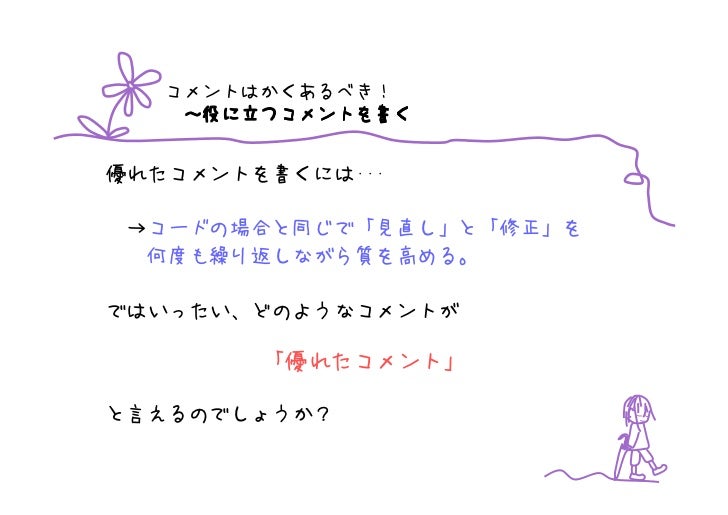 コメントはかくあるべき！
～役に立つコメントを書く
優れたコメントを書くには･･･
→コードの場合と同じで「見直し」と「修正」を
何度も繰り返しながら質を高める。
ではいったい、どのようなコメントが
「優れたコメント」
と言えるのでしょうか？